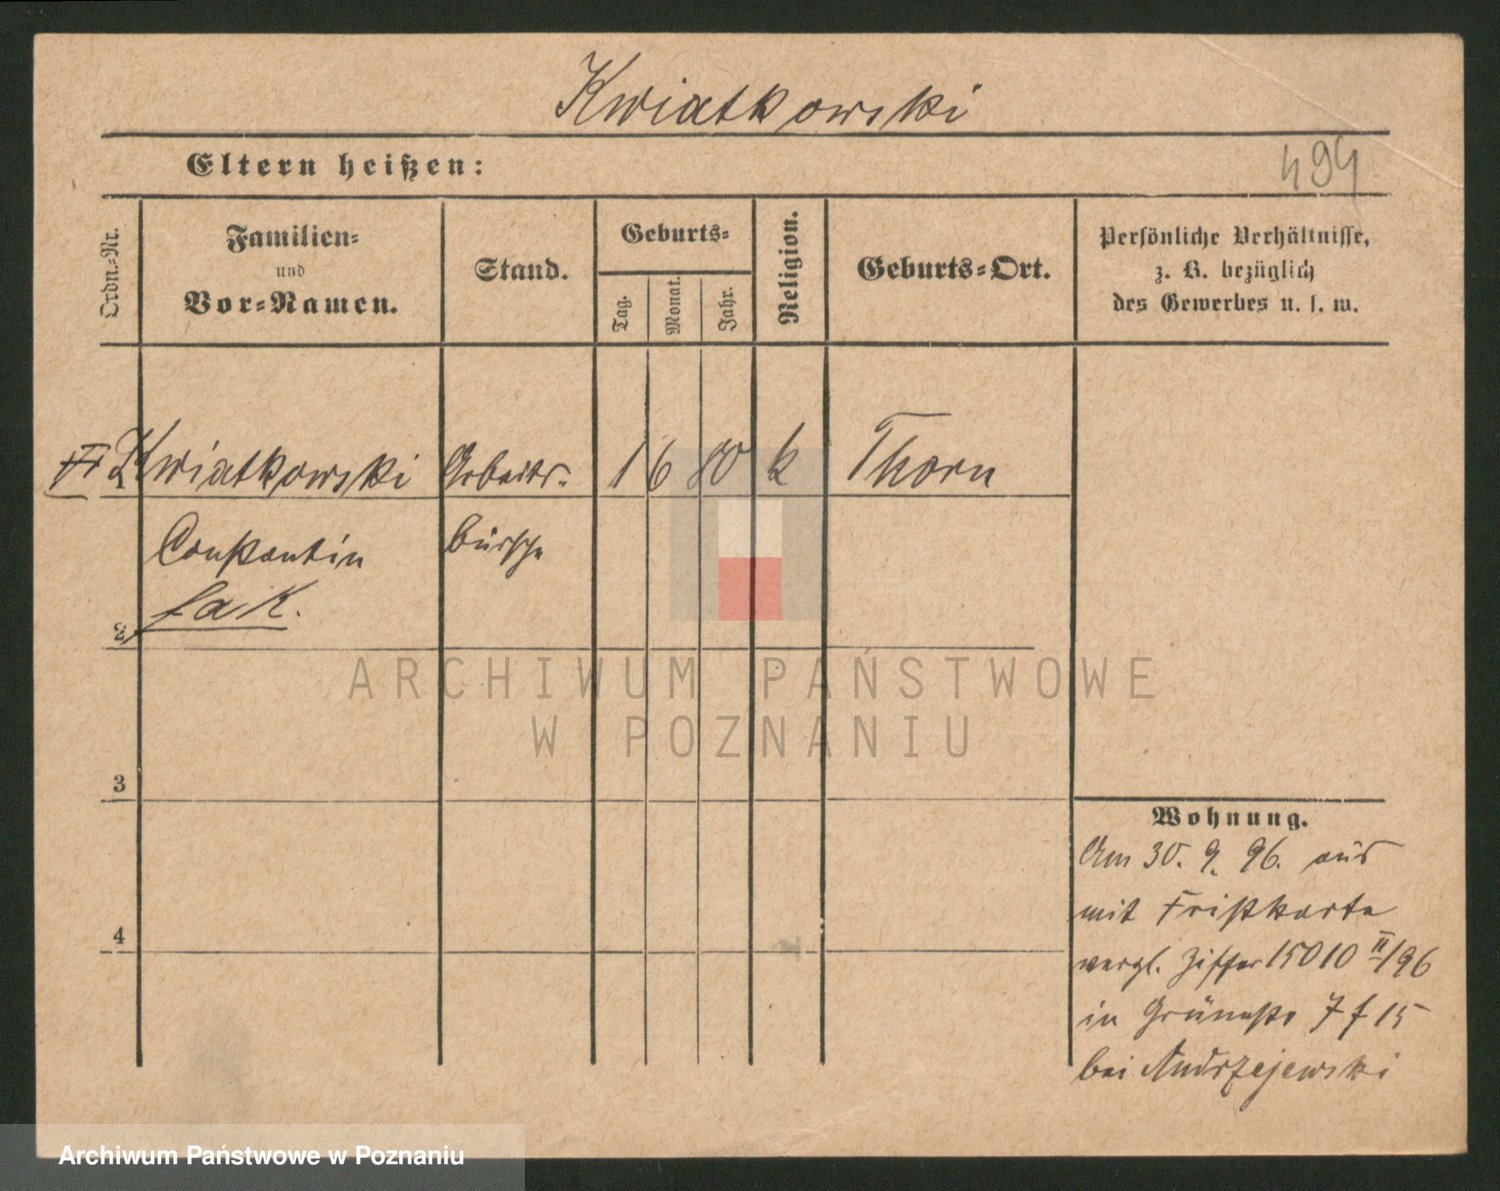 Kwiatkowski
Eltern heißen:
494
Ordn.-Nr.
Familien-
und
Vor-Namen.
Stand.
Geburts-
Tag.
Monat.
Jahr.
Religion.
Geburts-Ort.
Persönliche Verhältnisse,
z. B. bezüglich
des Gewerbes u. s. w.
Kwiatkowski Arbeits- 1 6 80 k Thorn
Constantin bursche
2
3
4
Wohnung.
Am 30. 9. 96. aus
mit Fristkarte
vergl. Ziffer 15010 II/96
in Grünestr 7 f 15
bei Andrzejewski
ARCHIWUM PAŃSTWOWE
W POZNANIU
Archiwum Państwowe w Poznaniu